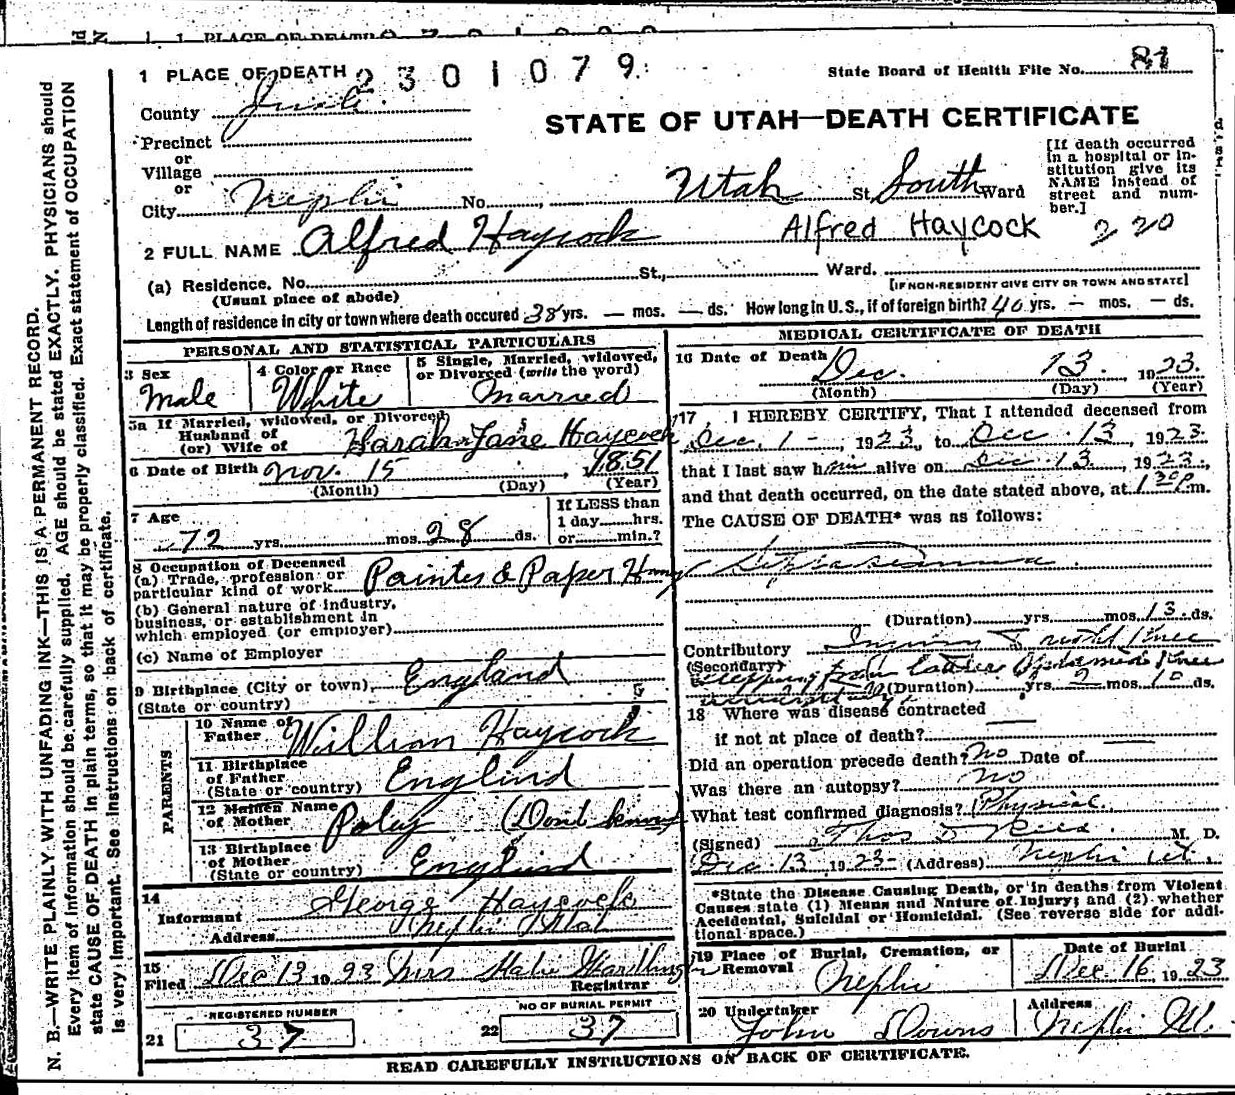 1 PLACE OF DEATH
2301079
State Board of Health File No. 81
County Juab.
STATE OF UTAH—DEATH CERTIFICATE
Precinct
or
Village
or
City Nephi No. , Utah St. South Ward
[If death occurred in a hospital or institution give its NAME instead of street and number.]
2 FULL NAME Alfred Haycock Alfred Haycock 220
(a) Residence. No. St., Ward.
(Usual place of abode) [IF NON-RESIDENT GIVE CITY OR TOWN AND STATE]
Length of residence in city or town where death occured 38 yrs. — mos. — ds. How long in U.S., if of foreign birth? 40 yrs. — mos. — ds.
PERSONAL AND STATISTICAL PARTICULARS
3 Sex
Male
4 Color or Race
White
5 Single, Married, widowed, or Divorced (write the word)
Married
5a If Married, widowed, or Divorced
Husband of
(or) Wife of Sarah Jane Haycock
6 Date of Birth Nov. 15, 1851
(Month) (Day) (Year)
7 Age
72 yrs. mos. 28 ds.
If LESS than
1 day......hrs.
or......min.?
8 Occupation of Deceased
(a) Trade, profession or
particular kind of work Painter & Paper Hang
(b) General nature of industry,
business, or establishment in
which employed (or employer)
(c) Name of Employer
9 Birthplace (City or town), England
(State or country)
PARENTS
10 Name of
Father William Haycock
11 Birthplace
of Father
(State or country) England
12 Maiden Name
of Mother Poley (Dont know)
13 Birthplace
of Mother
(State or country) England
14
Informant George Haycock
Address Nephi Utah
15
Filed Dec 13 1923 Mrs
Registrar
REGISTERED NUMBER
21 37
NO OF BURIAL PERMIT
22 37
MEDICAL CERTIFICATE OF DEATH
16 Date of Death Dec. 13. 1923.
(Month) (Day) (Year)
17 I HEREBY CERTIFY, That I attended deceased from
Dec. 1 -, 1923, to Dec. 13, 1923.
that I last saw him alive on Dec 13, 1923,
and that death occurred, on the date stated above, at 1 30 P.m.
The CAUSE OF DEATH* was as follows:
(Duration) yrs. mos. 13 ds.
Contributory Injury to right knee
(Secondary) from
(Duration) yrs. 2 mos. 10 ds.
18 Where was disease contracted
if not at place of death?
Did an operation precede death? No Date of
Was there an autopsy? No
What test confirmed diagnosis? Physical
(Signed) Thos M. D.
Dec 13 1923 - (Address) Nephi Ut.
*State the Disease Causing Death, or in deaths from Violent
Causes state (1) Means and Nature of Injury; and (2) whether
Accidental, Suicidal or Homicidal. (See reverse side for additional space.)
19 Place of Burial, Cremation, or
Removal Nephi
Date of Burial
Dec. 16, 1923
20 Undertaker
John Downs
Address
Nephi Ut.
READ CAREFULLY INSTRUCTIONS ON BACK OF CERTIFICATE.
N. B.—WRITE PLAINLY WITH UNFADING INK—THIS IS A PERMANENT RECORD.
Every item of information should be carefully supplied. AGE should be stated EXACTLY. PHYSICIANS should
state CAUSE OF DEATH in plain terms, so that it may be properly classified. Exact statement of OCCUPATION
is very important. See instructions on back of certificate.